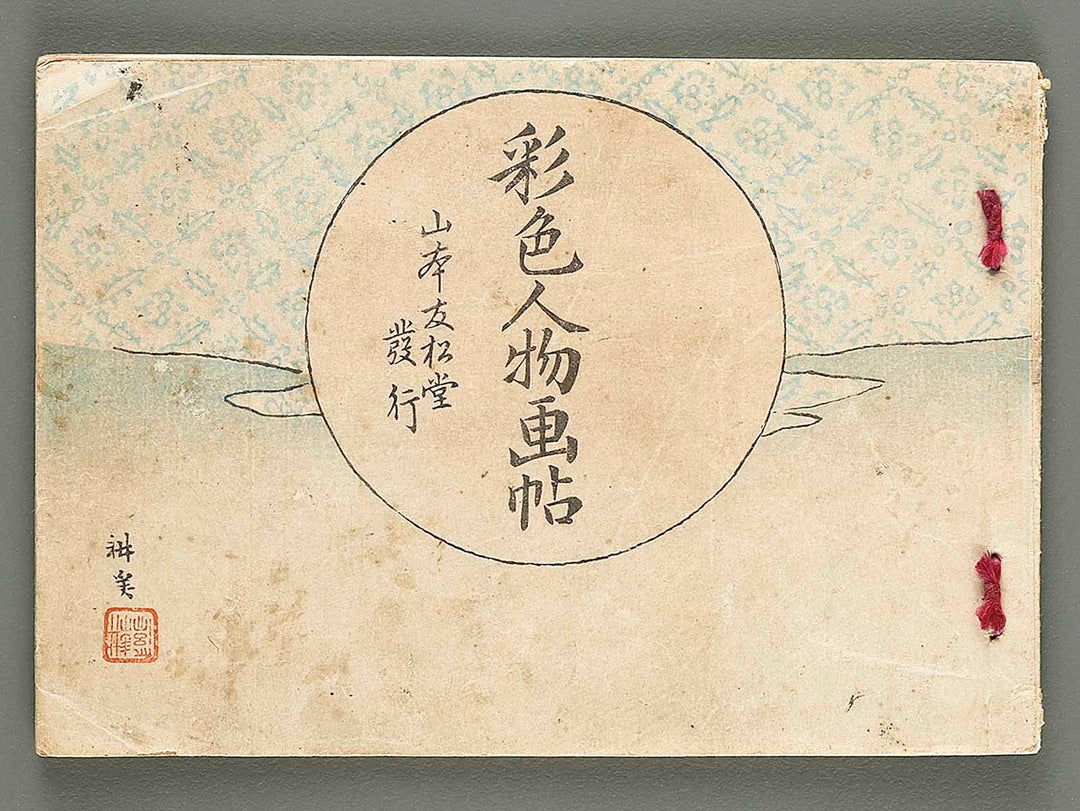 彩色人物画帖
山本友松堂
發行